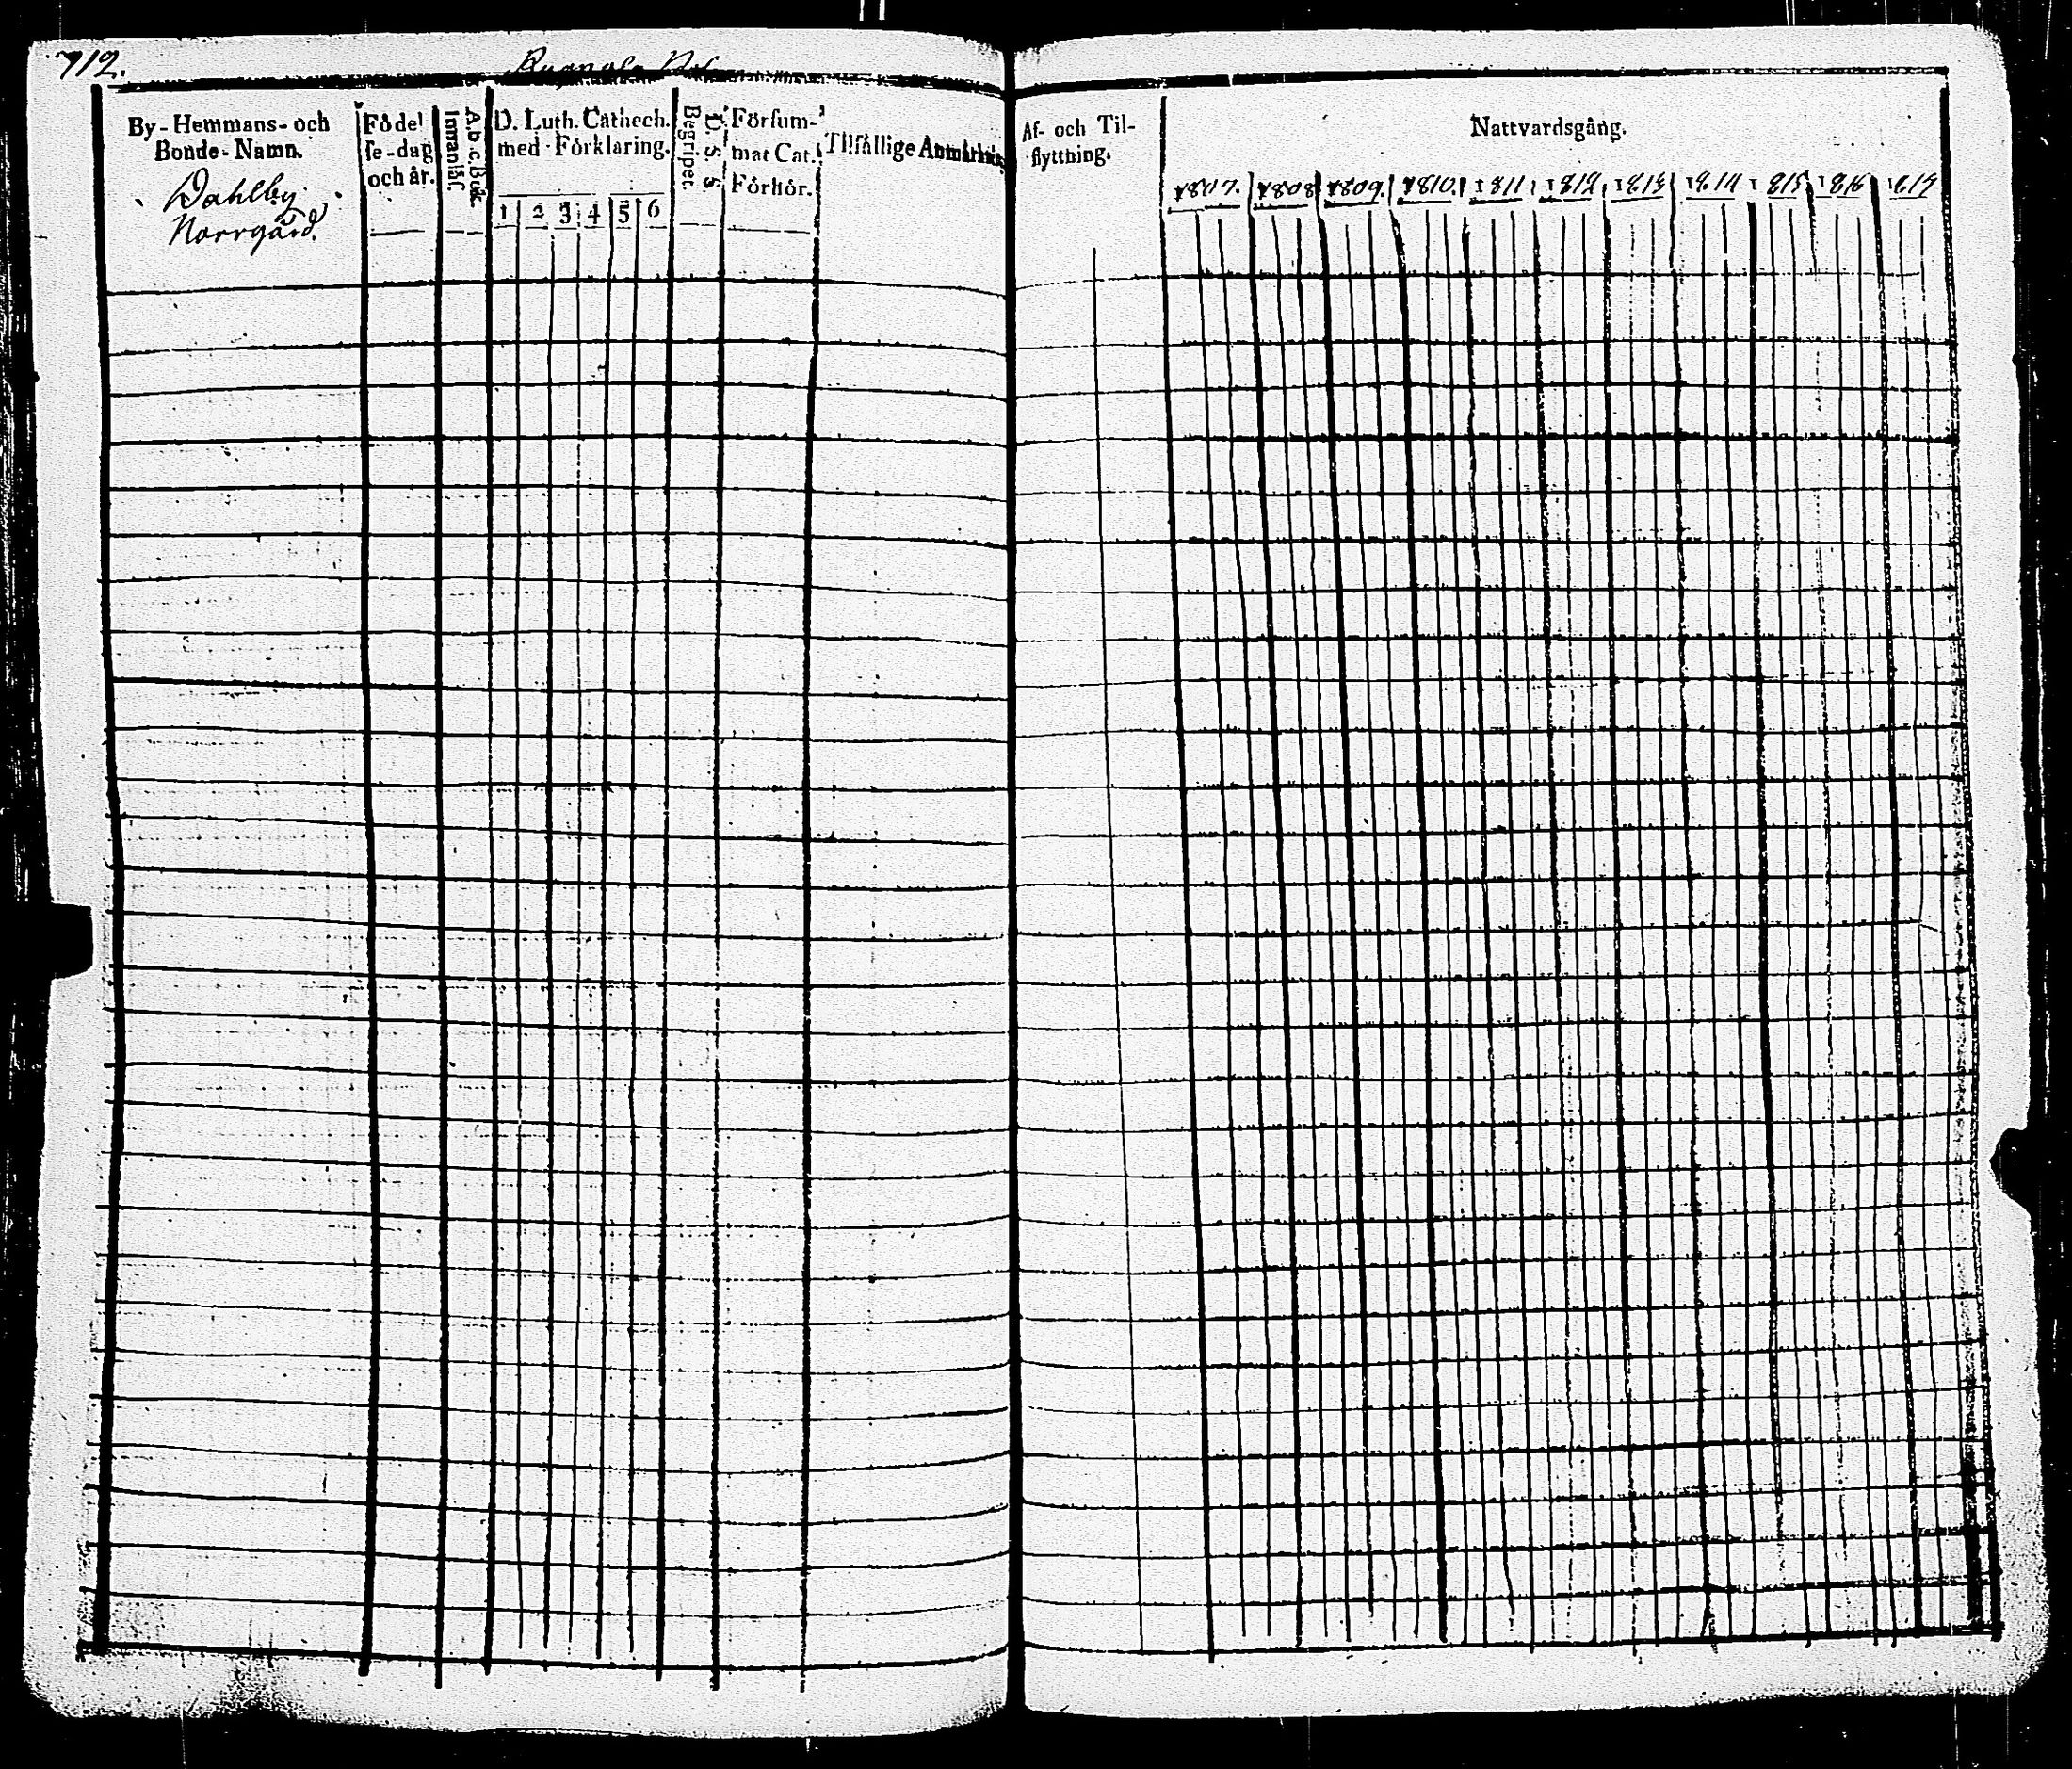 712.
By-Hemmans- och
Bonde-Namn.
Dahlby
Norrgård.
Födel
se-dag
och år.
A.b.c.Bok.
Innanläs.
D. Luth. Cathech.
med Förklaring.
1 2 3 4 5 6
D. S. S.
Begriper.
Försum-
mat Cat.
Förhör.
Tilfällige Anmärkn.
Af- och Til-
flyttning.
Nattvardsgång.
1807. 1808 1809. 1810. 1811 1812 1813 1814 1815 1816 1819